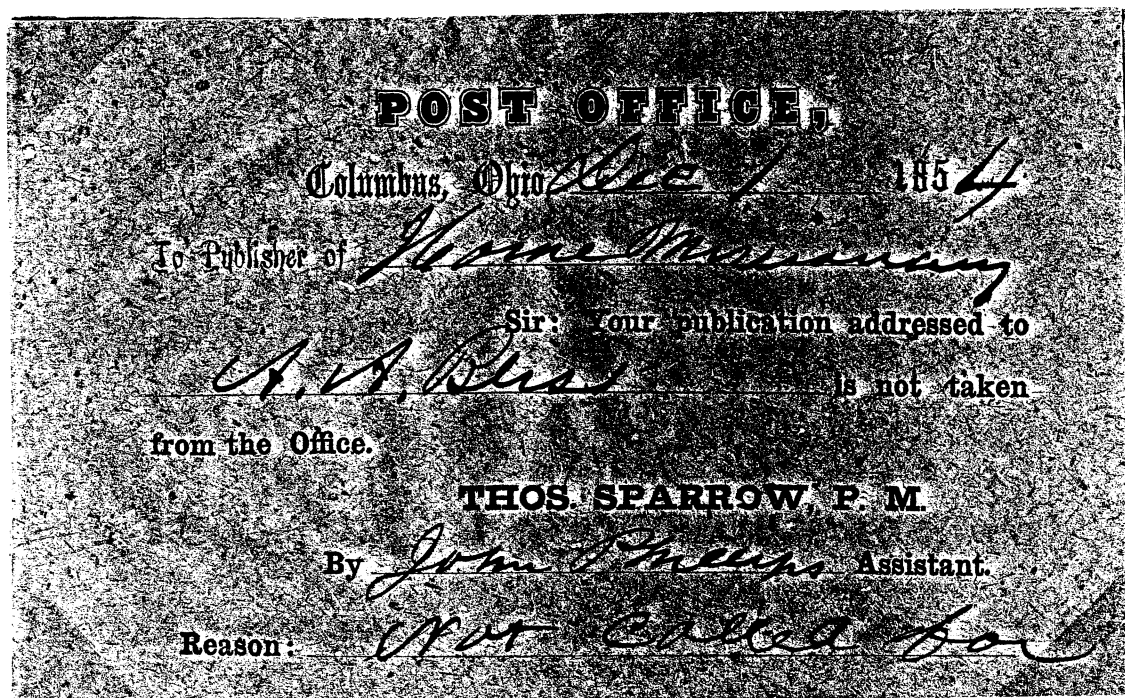 POST OFFICE,
Columbus, Ohio Dec 1 1854
To Publisher of Home Missionary
Sir: Your publication addressed to
A. A. Bliss is not taken
from the Office.
THOS. SPARROW, P. M.
By John Phillips Assistant.
Reason: Not Called for